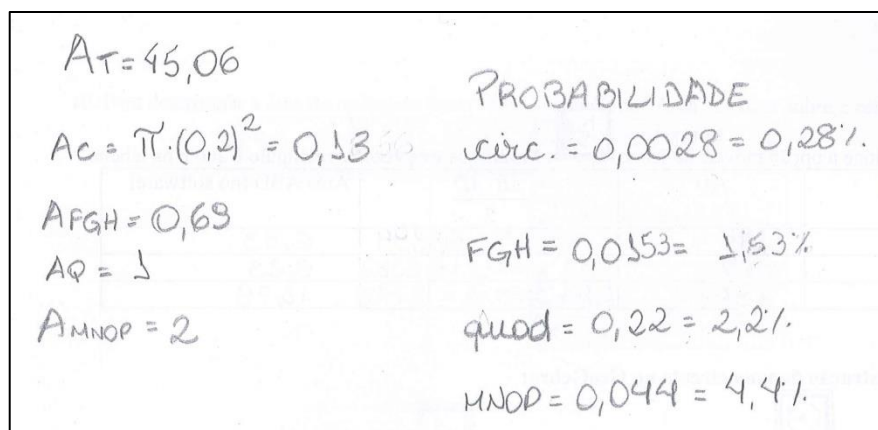 AT = 45,06
AC = π.(0,2)² = 0,13
AFGH = 0,69
AQ = 1
AMNOP = 2
PROBABILIDADE
circ. = 0,0028 = 0,28%.
FGH = 0,0153 = 1,53%
quad = 0,22 = 2,2%.
MNOP = 0,044 = 4,4%.